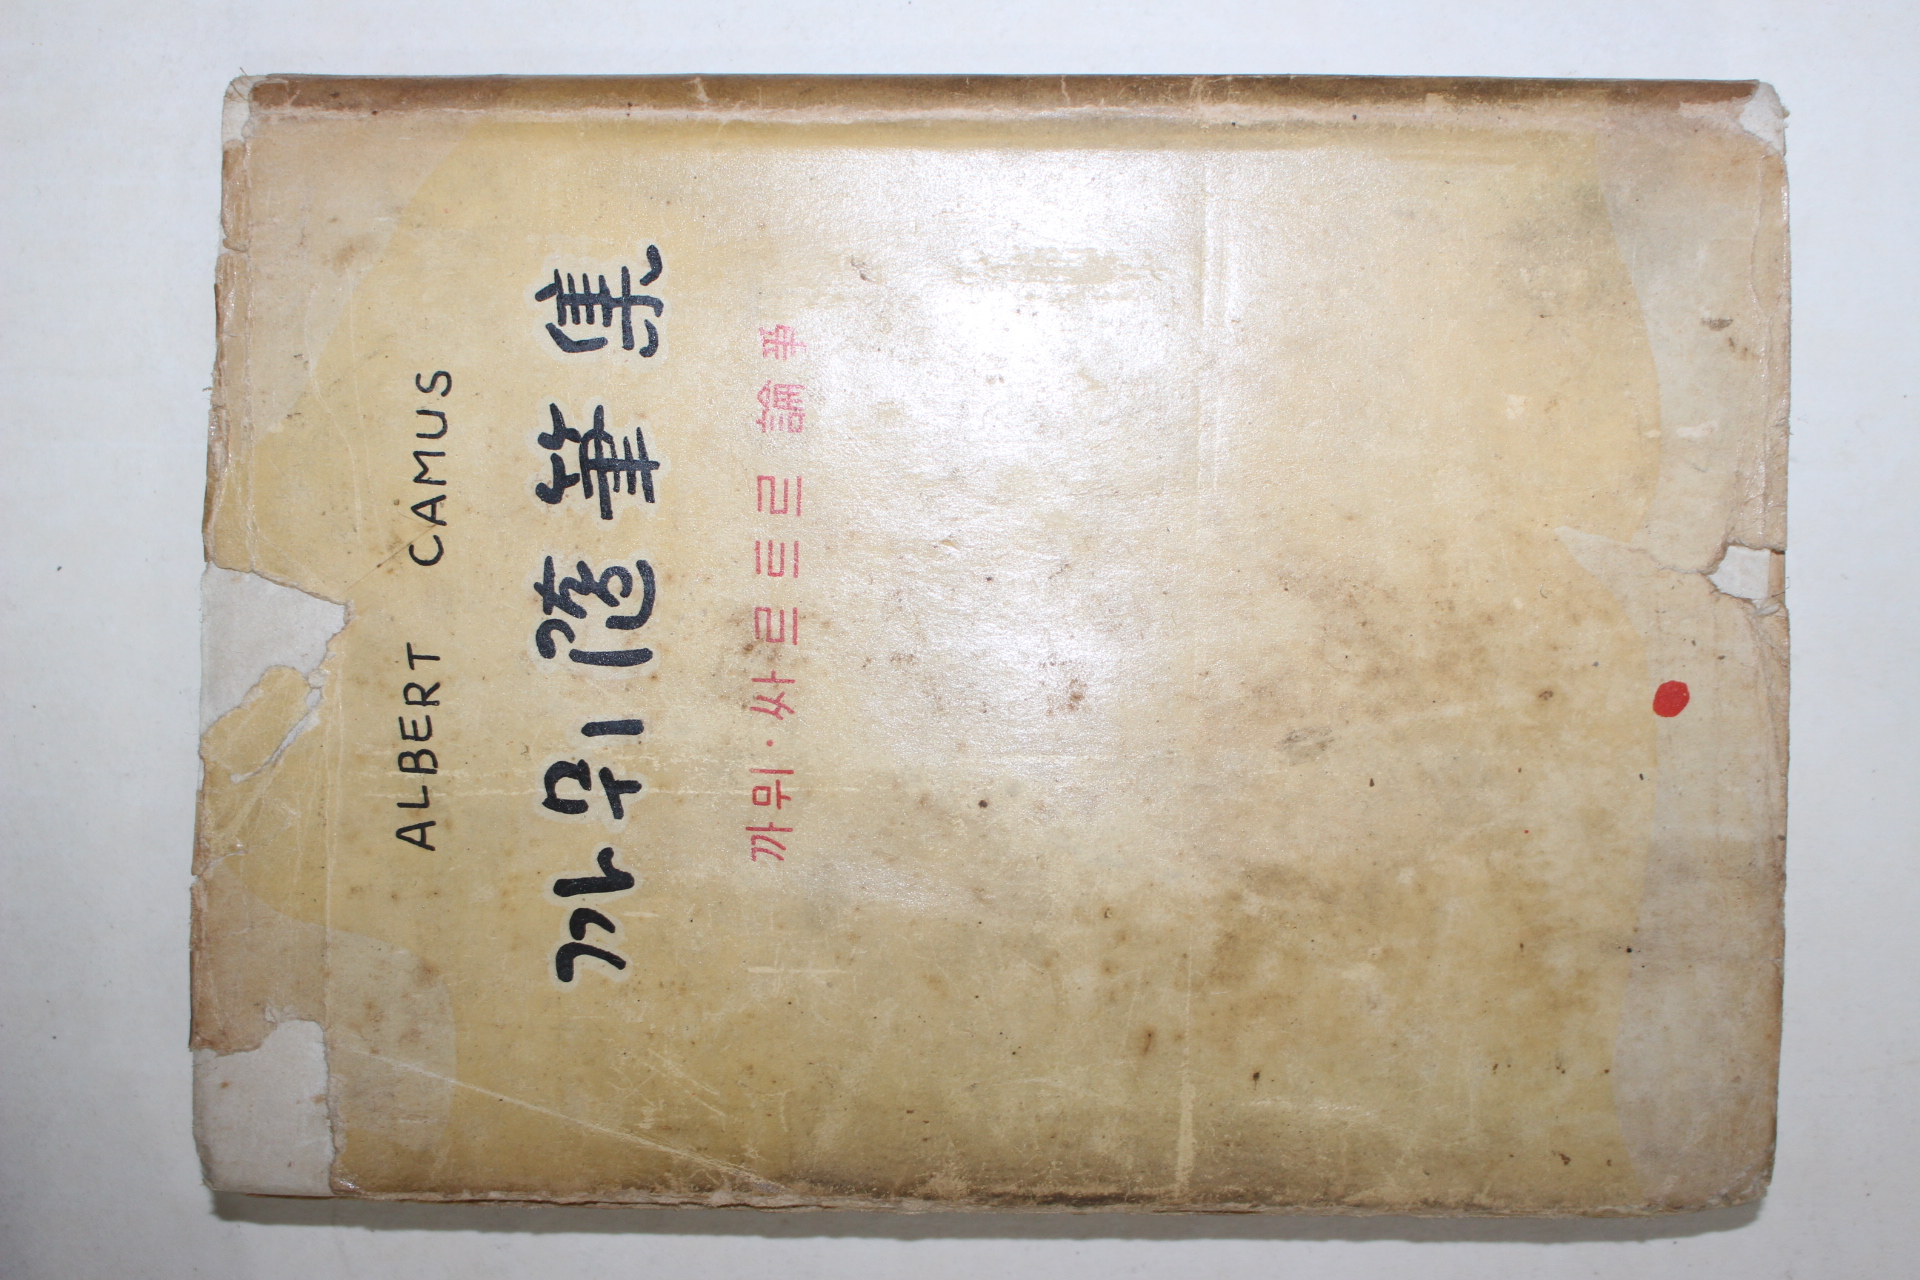 ALBERT CAMUS
까뮈隨筆集
까뮈·싸르트르 論爭